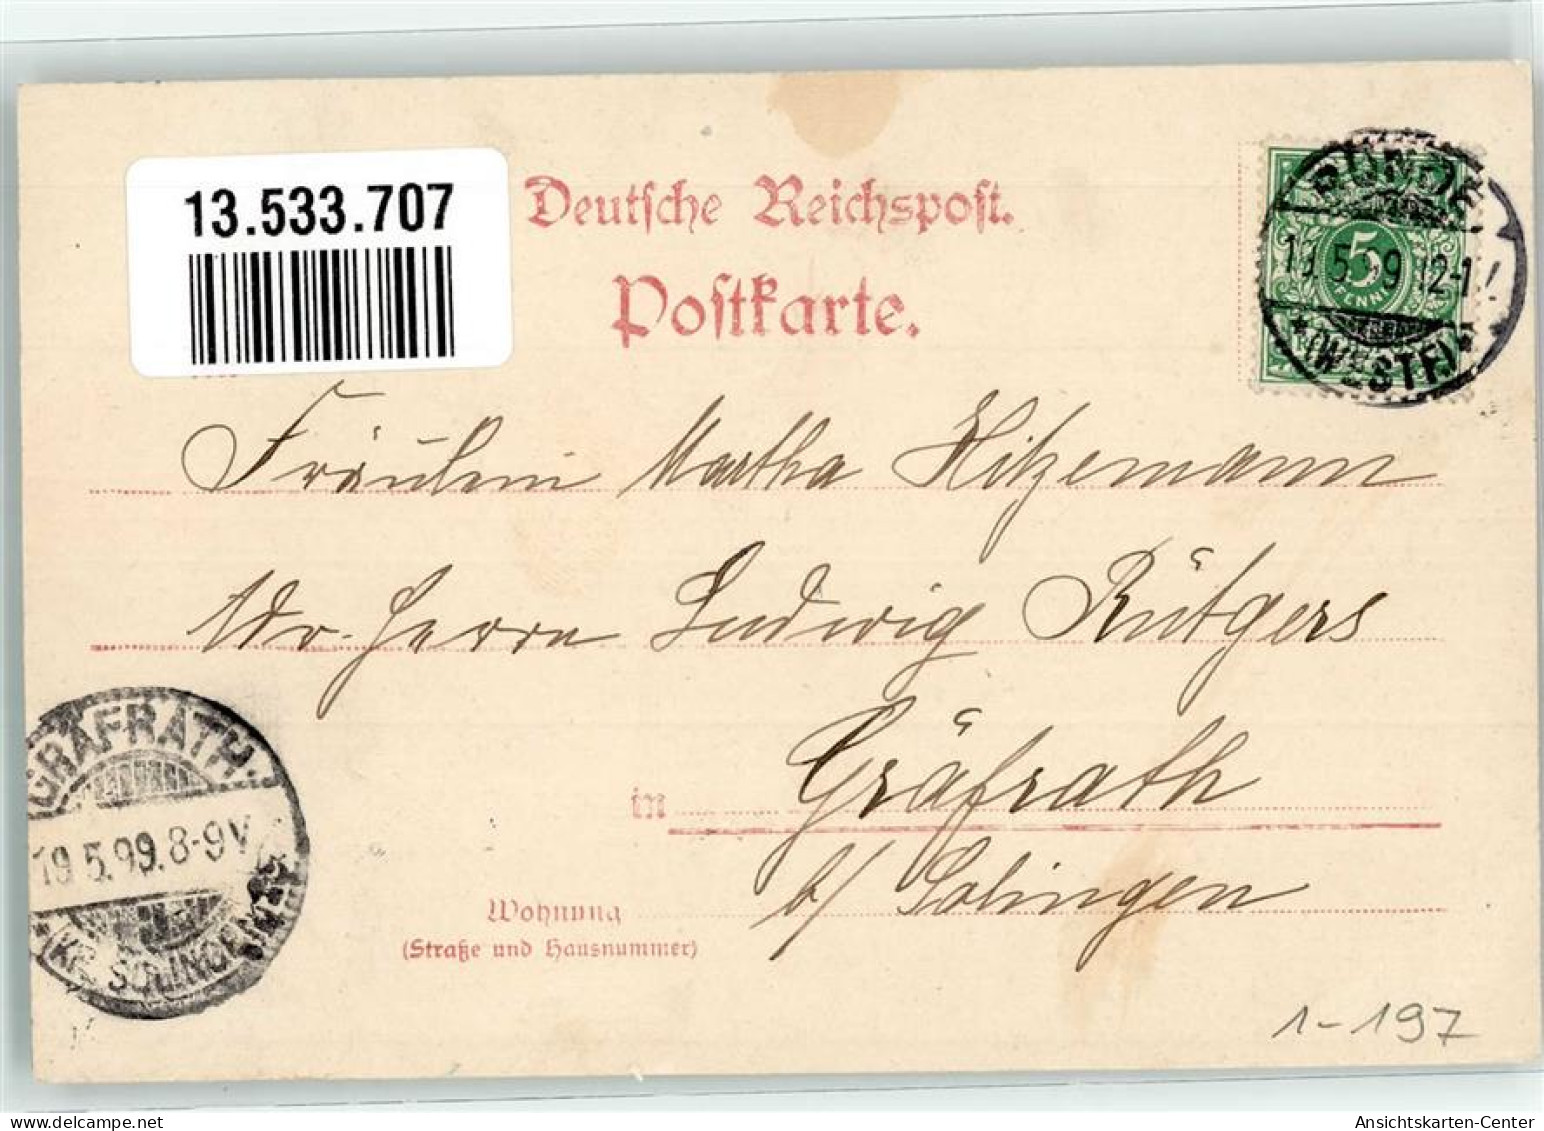 13.533.707
Deutsche Reichspost.
Postkarte.
BÜNDE
5.99.12-1
5
PFENNIG
(WESTF)
Fräulein Martha Hitzemann
Adr. Herrn Ludwig Rütgers
GRÄFRATH.
19.5.99.8-9V
(KR. SOLINGEN)
in Gräfrath
b/ Solingen
Wohnung
(Straße und Hausnummer)
1-197
Ansichtskarten-Center